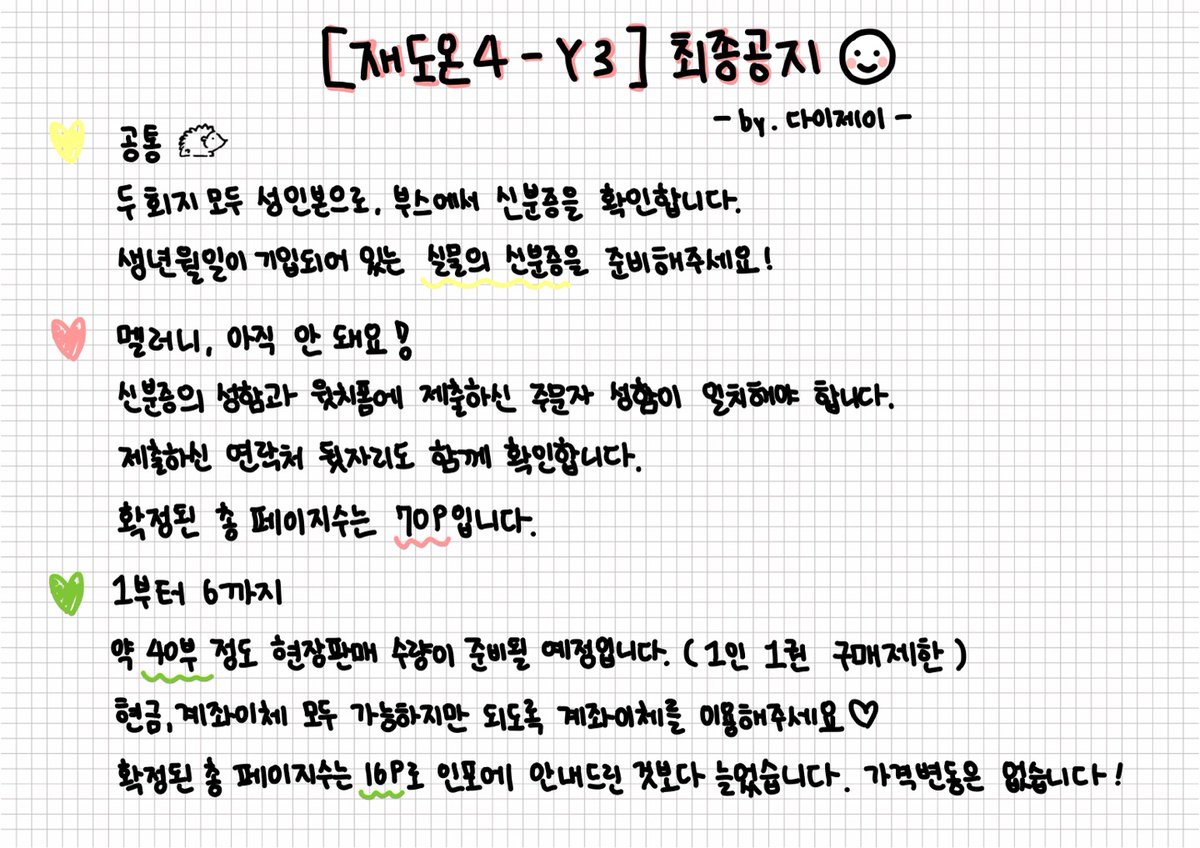 [재도온4-Y3] 최종공지
-by. 다이제이-
공통
두 회지 모두 성인본으로, 부스에서 신분증을 확인합니다.
생년월일이 기입되어 있는 실물의 신분증을 준비해주세요!
멜러니, 아직 안 돼요!
신분증의 성함과 윗치폼에 제출하신 주문자 성함이 일치해야 합니다.
제출하신 연락처 뒷자리도 함께 확인합니다.
확정된 총 페이지수는 70P입니다.
1부터 6까지
약 40부 정도 현장판매 수량이 준비될 예정입니다. (1인 1권 구매제한)
현금, 계좌이체 모두 가능하지만 되도록 계좌이체를 이용해주세요♡
확정된 총 페이지수는 16P로 인포에 안내드린 것보다 늘었습니다. 가격변동은 없습니다!